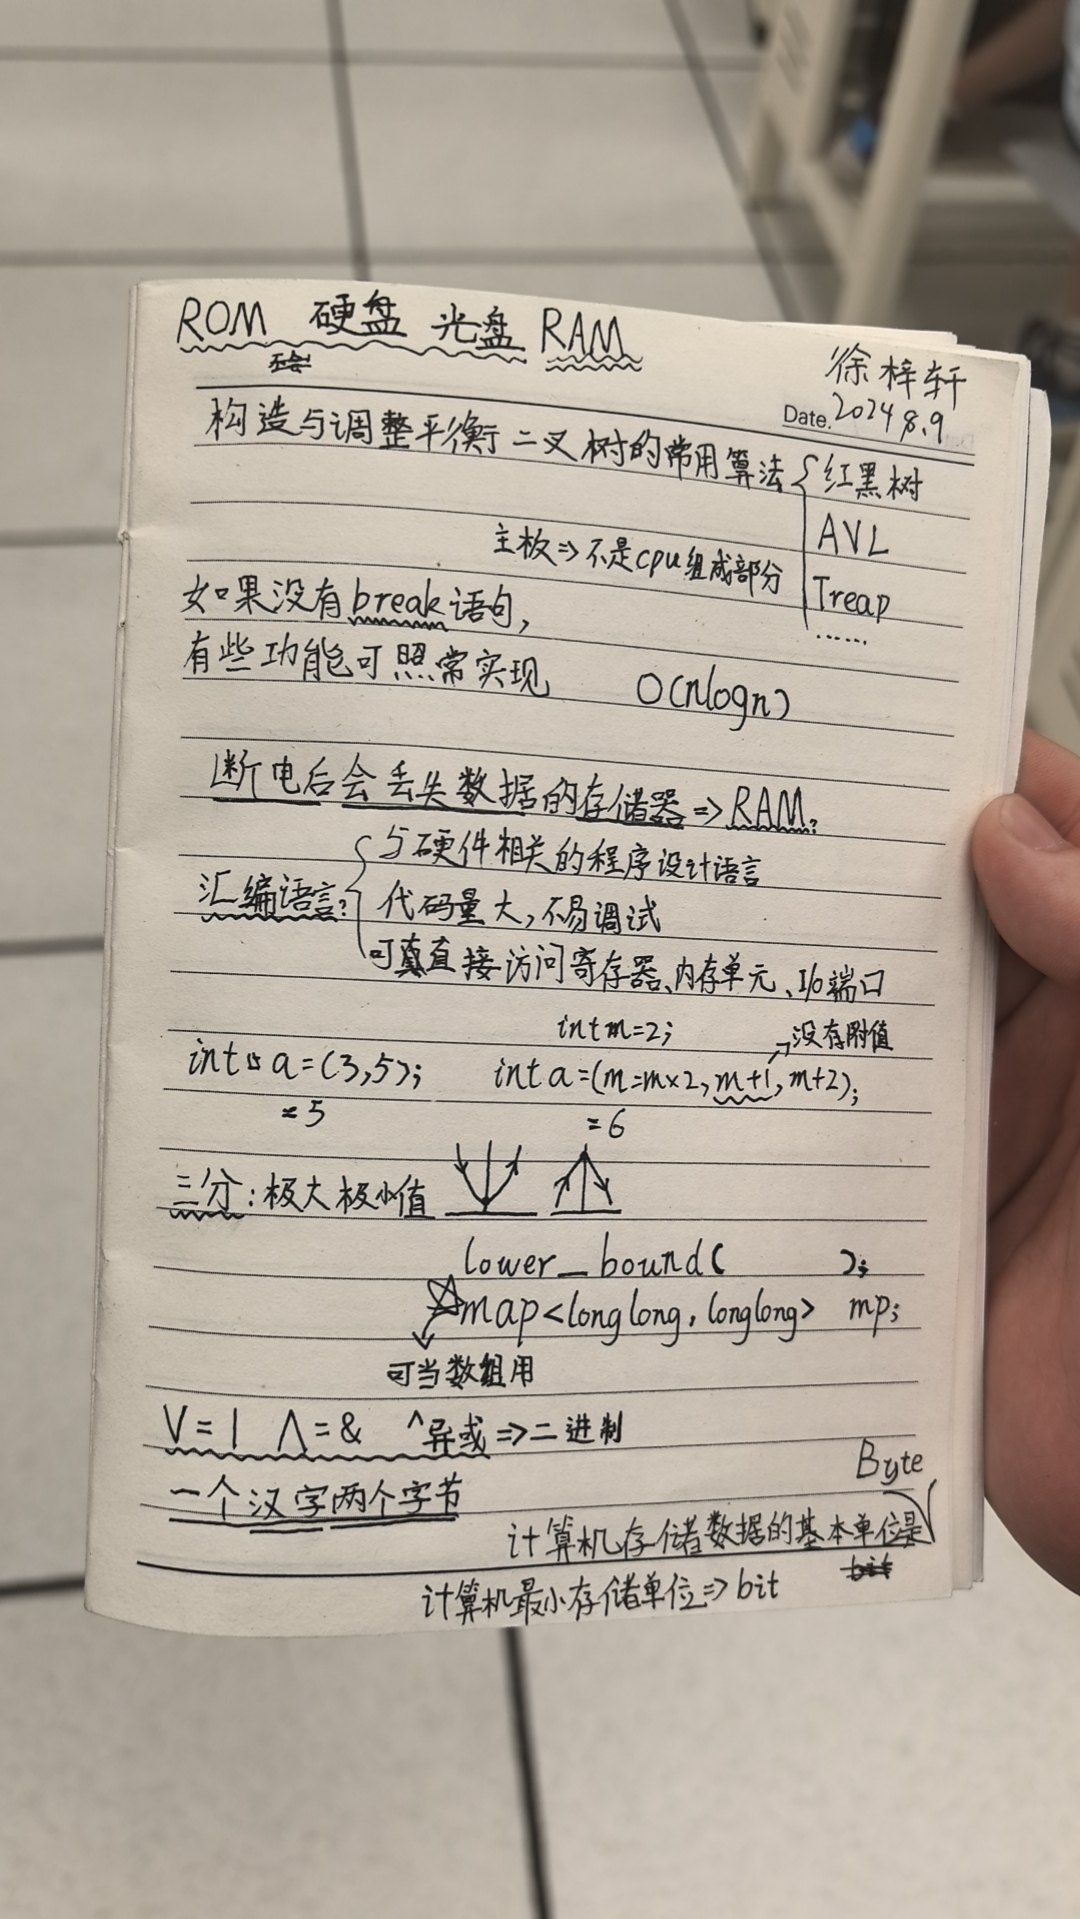 ROM 硬盘 光盘 RAM
不会
徐梓轩
Date. 2024 8.9
构造与调整平衡二叉树的常用算法
红黑树
AVL
Treap
……
主板=>不是cpu组成部分
如果没有break语句,
有些功能可照常实现 O(nlogn)
断电后会丢失数据的存储器=>RAM.
汇编语言?
与硬件相关的程序设计语言
代码量大,不易调试
可直接访问寄存器、内存单元、I/o端口
int m=2; 没存附值
int a=(3,5); int a=(m=m×2,m+1,m+2);
=5 =6
三分:极大极小值
lower_bound( );
map<longlong,longlong> mp;
可当数组用
V=| Λ=& ^异或=>二进制
一个汉字两个字节
Byte
计算机存储数据的基本单位是
bit
计算机最小存储单位=>bit